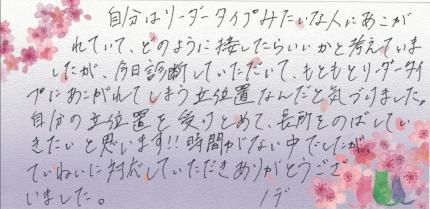 自分はリーダータイプみたいな人にあこが
れていて、どのように接したらいいかと考えていま
したが、今日診断していただいて、もともとリーダータイ
プにあこがれてしまう立位置なんだと気づけました。
自分の立位置を受けとめて、長所をのばしてい
きたいと思います!!時間がない中でしたが、
ていねいに対応していただきありがとうござ
いました。